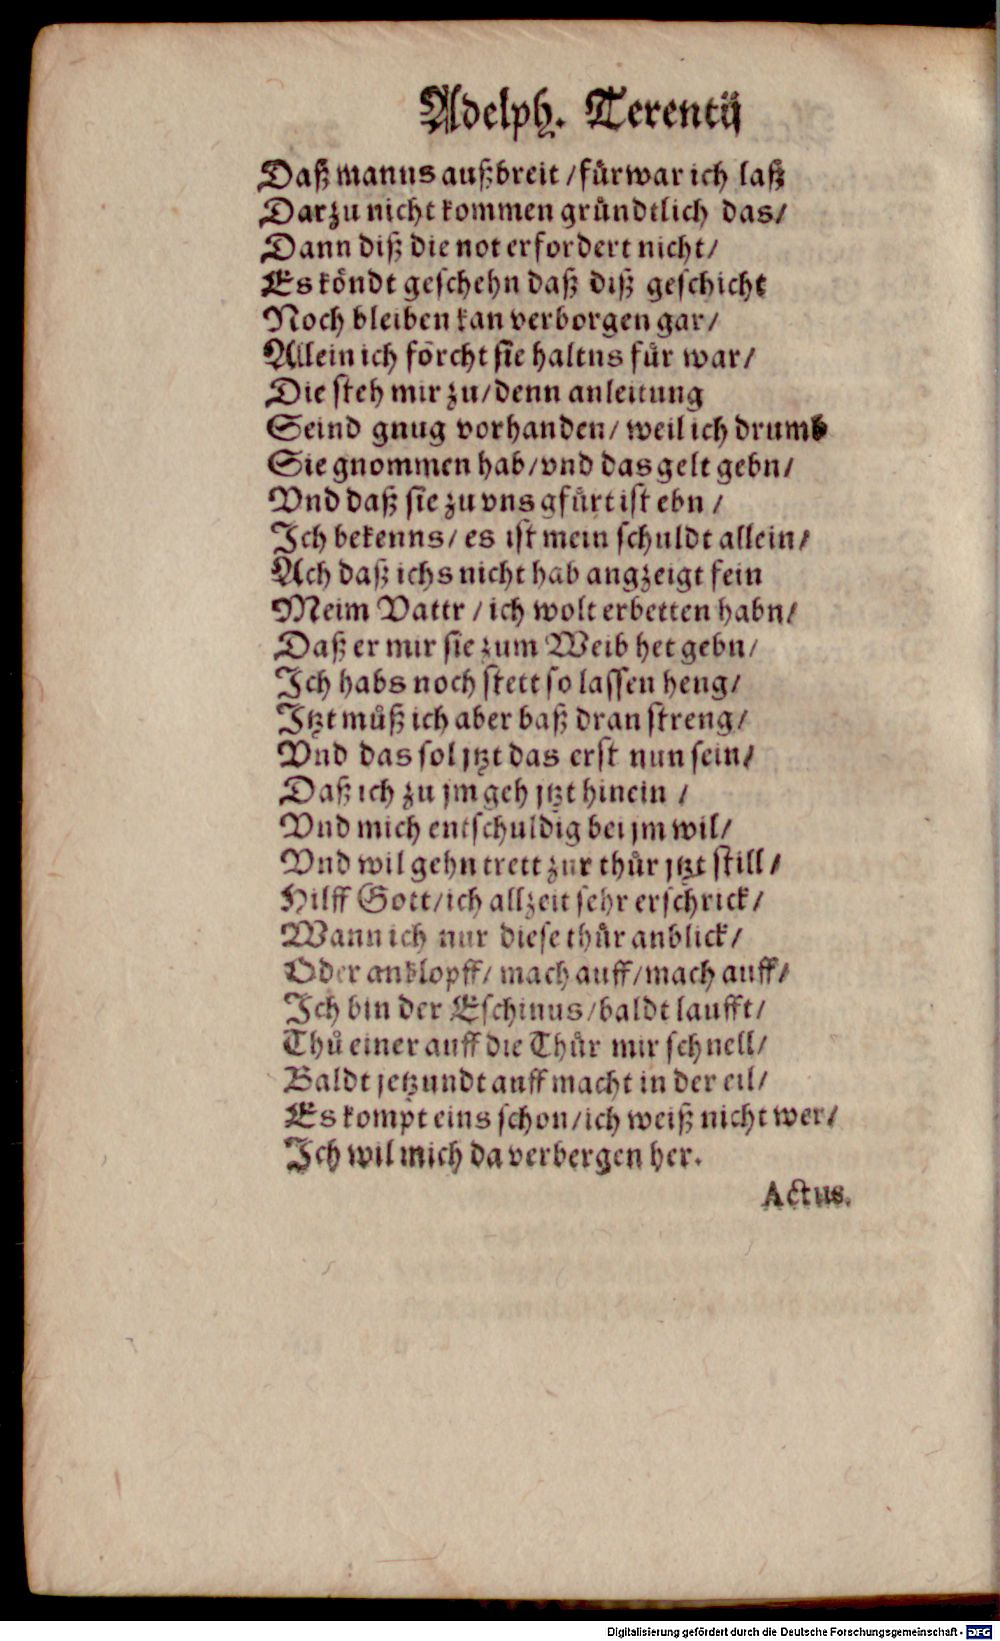 Adelph. Terentij
Daß manns außbreit / fürwar ich laß
Darzu nicht kommen gründtlich das/
Dann diß die not erfordert nicht/
Es köndt geschehn daß diß geschicht
Noch bleiben kan verborgen gar/
Allein ich förcht sie haltns für war/
Die steh mir zu/denn anleitung
Seind gnug vorhanden/ weil ich drumb
Sie gnommen hab/vnd das gelt gebn/
Vnd daß sie zu vns gfürt ist ebn /
Ich bekenns/ es ist mein schuldt allein/
Ach daß ichs nicht hab angzeigt fein
Meim Vattr / ich wolt erbetten habn/
Daß er mir sie zum Weib het gebn/
Ich habs noch stett so lassen heng/
Itzt můß ich aber baß dran streng/
Vnd das sol jtzt das erst nun sein/
Daß ich zu jm geh jtzt hinein /
Vnd mich entschuldig bei jm wil/
Vnd wil gehn trett zur thür jtzt still/
Hilff Gott/ich allzeit sehr erschrick/
Wann ich nur diese thür anblick/
Oder anklopff/ mach auff/mach auff/
Ich bin der Eschinus/baldt laufft/
Thů einer auff die Thür mir schnell/
Baldt jetzundt auff macht in der eil/
Es kompt eins schon/ich weiß nicht wer/
Ich wil mich da verbergen her.
Actus.
Digitalisierung gefördert durch die Deutsche Forschungsgemeinschaft - DFG